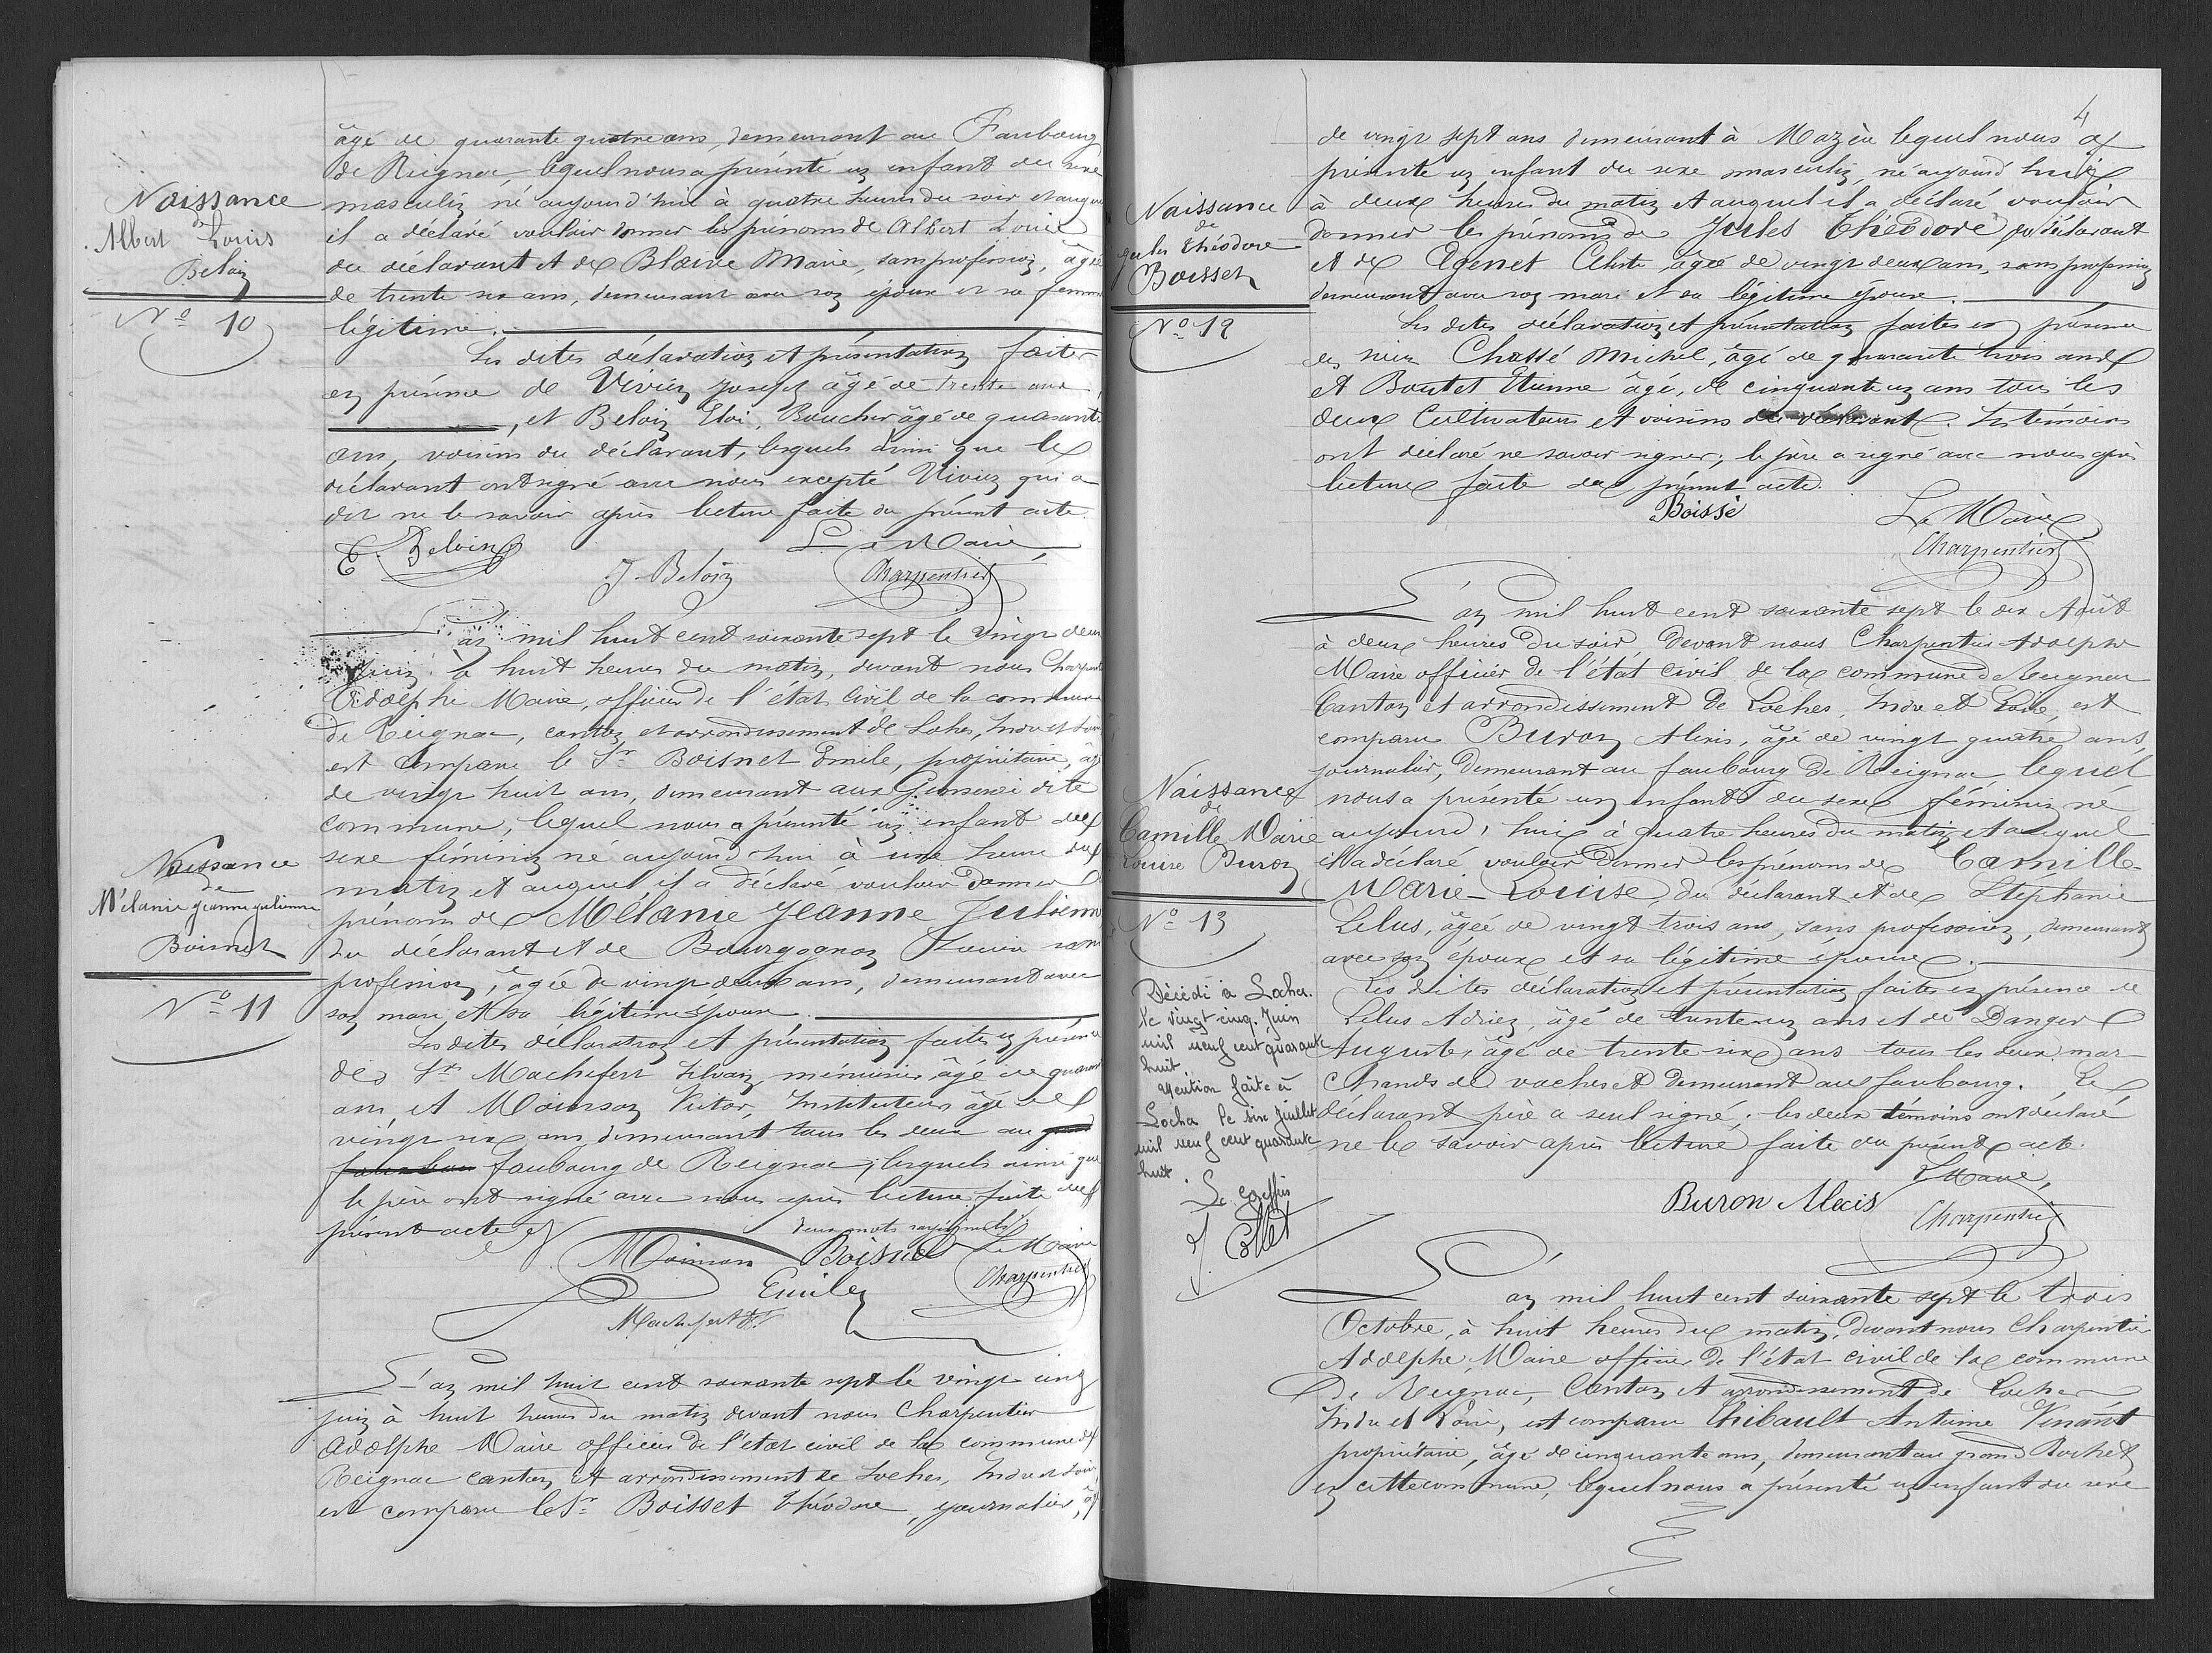 âgé de quarante quatre ans, demeurant au Faubourg
de Reignac, lequel nous a présenté un enfant du sexe
masculin né aujourd'hui à quatre heures du soir et auquel
il a déclaré vouloir donner les prénoms de Albert Louis
du déclarant et de Blaive Marie, sans profession, âgée
de trente six ans, demeurant avec son époux et sa femme
légitime.
Naissance
de
Albert Louis
Beloin
No 10
Les dites déclaration et présentation faites
en présence de Vivien Joseph âgé de trente ans
, et Beloin Eloi, Boucher âgé de quarante
ans, voisins du déclarant, lesquels ainsi que le
déclarant ont signé avec nous excepté Vivien qui a
dit ne le savoir après lecture faite du présent acte.
E. Beloin
J. Beloin
Le Maire,
Charpentier
L'an mil huit cent soixante sept le vingt deux
Juin à huit heures du matin, devant nous Charpentier
Adolphe Maire, officier de l'état civil de la commune
de Reignac, canton et arrondissement de Loches, Indre et Loire
est comparu le Sr Boisnet Emile, propriétaire, âgé
de vingt huit ans, demeurant aux dite
commune, lequel nous a présenté un enfant du
sexe féminin né aujourd'hui à une heure du
matin et auquel il a déclaré vouloir donner
prénoms de Mélanie Jeanne Julienne
du déclarant et de Bourgognon sans
profession, âgée de vingt deux ans, demeurant avec
son mari et sa légitime épouse.
Naissance
de
Mélanie Jeanne Julienne
Boisnet
No 11
Les dites déclaration et présentation faites en présence
des Srs Machefert Silvain, menuisier âgé de quarante
ans, et Moinson Victor, Instituteur âgé de
vingt six ans, demeurant tous les deux au
faubourg de Reignac, lesquels ainsi que
le père ont signé avec nous après lecture faite du
présent acte
deux mots rayés nuls
Moinson
Boisnet
Emile
Machefert
Le Maire
Charpentier
L'an mil huit cent soixante sept le vingt cinq
juin à huit heures du matin devant nous Charpentier
Adolphe Maire officier de l'état civil de la commune de
Reignac canton et arrondissement de Loches, Indre et Loire,
est comparu le Sr Boisset Théodore, journalier, âgé
4
de vingt sept ans demeurant à Mazère lequel nous a
présenté un enfant du sexe masculin, né aujourd'hui
à deux heures du matin et auquel il a déclaré vouloir
donner les prénoms de Jules Théodore du déclarant
et de Céleste, âgée de vingt deux ans, sans profession
demeurant avec son mari et sa légitime épouse.
Naissance
de
Jules Théodore
Boisset
No 12
Les dites déclaration et présentation faites en présence
des sieurs Chassé Michel, âgé de quarante trois ans
et Boutet Etienne âgé, de cinquante un ans tous les
deux Cultivateurs et voisins du déclarant. Les témoins
ont déclaré ne savoir signer; le père a signé avec nous après
lecture faite du présent acte.
Boissé
Le Maire
Charpentier
L'an mil huit cent soixante sept le dix Août
à deux heures du soir, devant nous Charpentier Adolphe
Maire officier de l'état civil de la commune de Reignac
Canton et arrondissement de Loches, Indre et Loire, est
comparu Buron Alexis, âgé de vingt quatre ans,
journalier, demeurant au faubourg de Reignac, lequel
nous a présenté un enfant du sexe féminin né
aujourd'hui à quatre heures du matin et auquel
il a déclaré vouloir donner les prénoms de Camille
Marie-Louise, du déclarant et de Stéphanie
Lelus, âgée de vingt trois ans, sans profession, demeurant
avec son époux et sa légitime épouse.
Naissance
de
Camille Marie
Louise Buron
No 13
Décédé à Loches.
le vingt-cinq Juin
mil neuf cent quarante
huit.
Mention faite à
Loches le six Juillet
mil neuf cent quarante
huit.
Le Greffier
J. Collet
Les dites déclaration et présentation faites en présence de
Lelus Adrien, âgé de trente un ans et de Danger
Auguste, âgé de trente six ans tous les deux mar-
chands de vaches et demeurant au faubourg. Le
déclarant père a seul signé; les deux témoins ont déclaré
ne le savoir après lecture faite du présent acte.
Buron Alecis
Le Maire,
Charpentier
L'an mil huit cent soixante sept le trois
Octobre, à huit heures du matin, devant nous Charpentier
Adolphe, Maire officier de l'état civil de la commune
de Reignac, Canton et arrondissement de Loches
Indre et Loire, est comparu Thibault Antoine Venant
propriétaire, âgé de cinquante ans, demeurant au grand Rochet
en cette commune, lequel nous a présenté un enfant du sexe